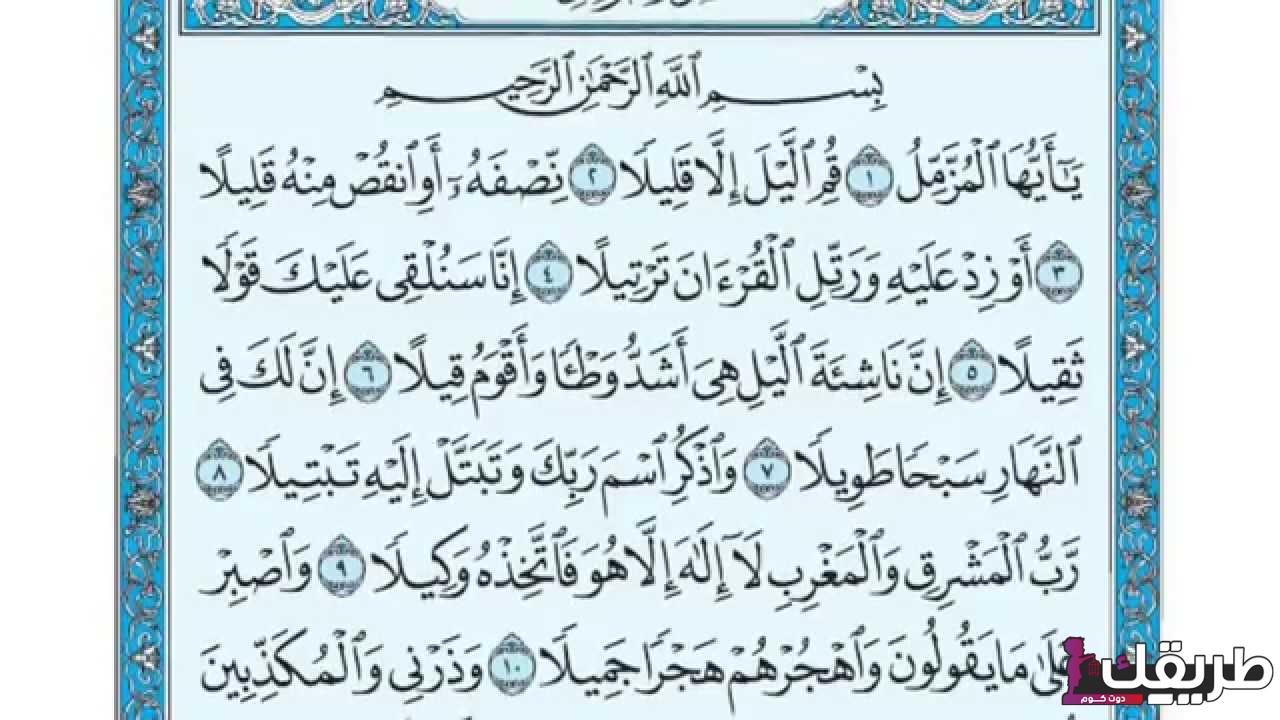 بِسْمِ ٱللَّهِ ٱلرَّحْمَٰنِ ٱلرَّحِيمِ
يَٰٓأَيُّهَا ٱلْمُزَّمِّلُ ١ قُمِ ٱلَّيْلَ إِلَّا قَلِيلًا ٢ نِّصْفَهُۥٓ أَوِ ٱنقُصْ مِنْهُ قَلِيلًا
٣ أَوْ زِدْ عَلَيْهِ وَرَتِّلِ ٱلْقُرْءَانَ تَرْتِيلًا ٤ إِنَّا سَنُلْقِى عَلَيْكَ قَوْلًا
ثَقِيلًا ٥ إِنَّ نَاشِئَةَ ٱلَّيْلِ هِىَ أَشَدُّ وَطْـًٔا وَأَقْوَمُ قِيلًا ٦ إِنَّ لَكَ فِى
ٱلنَّهَارِ سَبْحًا طَوِيلًا ٧ وَٱذْكُرِ ٱسْمَ رَبِّكَ وَتَبَتَّلْ إِلَيْهِ تَبْتِيلًا ٨
رَّبُّ ٱلْمَشْرِقِ وَٱلْمَغْرِبِ لَآ إِلَٰهَ إِلَّا هُوَ فَٱتَّخِذْهُ وَكِيلًا ٩ وَٱصْبِرْ
عَلَىٰ مَا يَقُولُونَ وَٱهْجُرْهُمْ هَجْرًا جَمِيلًا ١٠ وَذَرْنِى وَٱلْمُكَذِّبِينَ
طريقك
دوت كوم